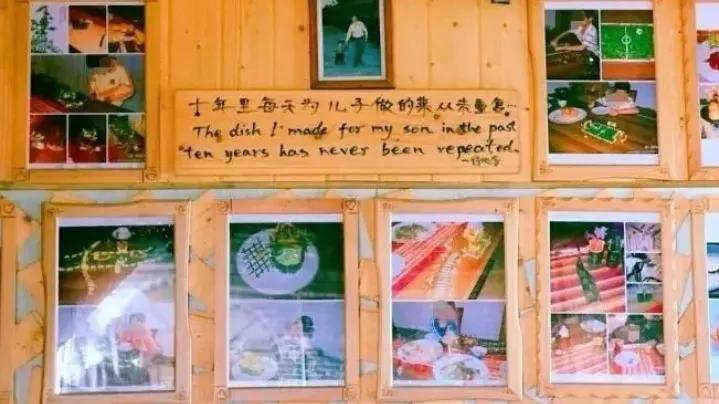 十年里每天为儿子做的菜从未重复...
The dish I made for my son in the past
ten years has never been repeated.